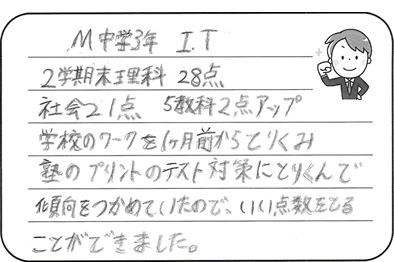 M中学3年 I.T
2学期末理科 28点
社会21点 5教科2点アップ
学校のワークを1ヶ月前からとりくみ
塾のプリントのテスト対策にとりくんで
傾向をつかめていたので、いい点数をとる
ことができました。